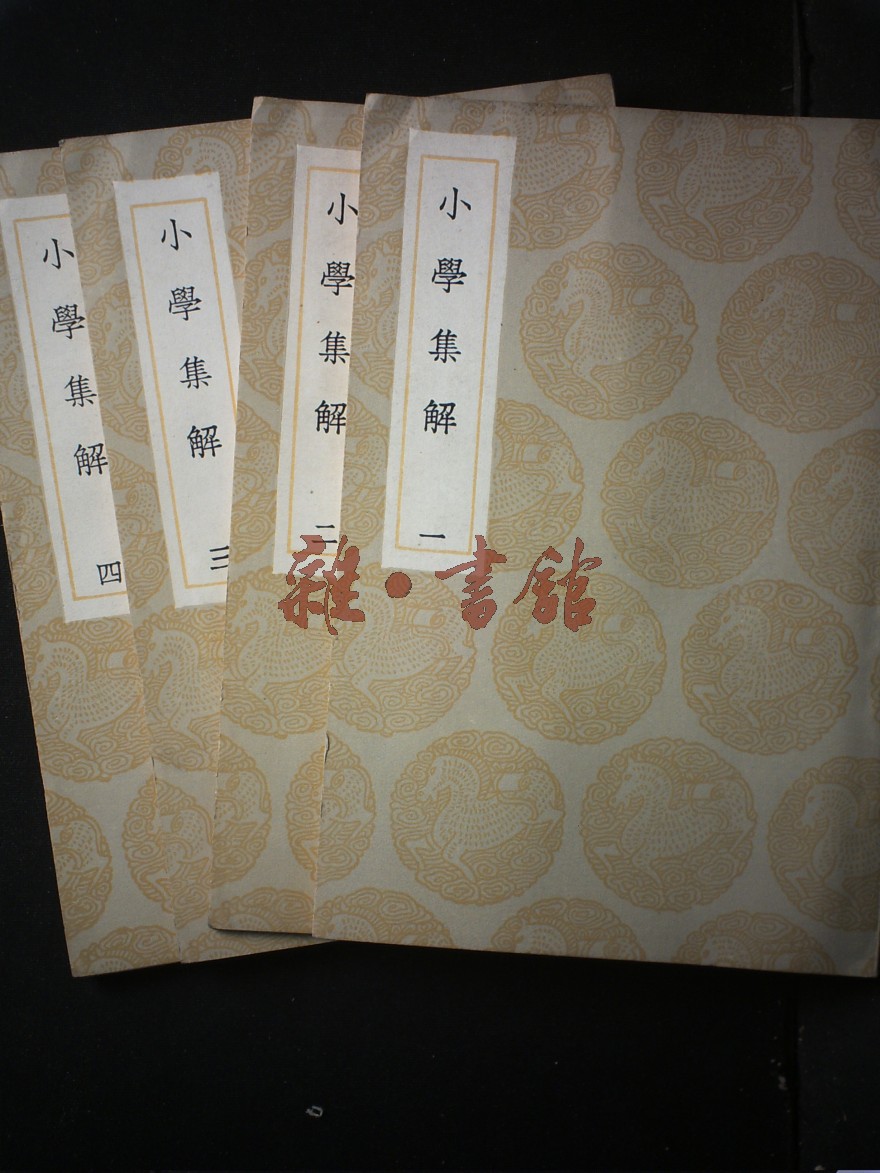 小學集解 一
小學集解 二
小學集解 三
小學集解 四
雜·書館